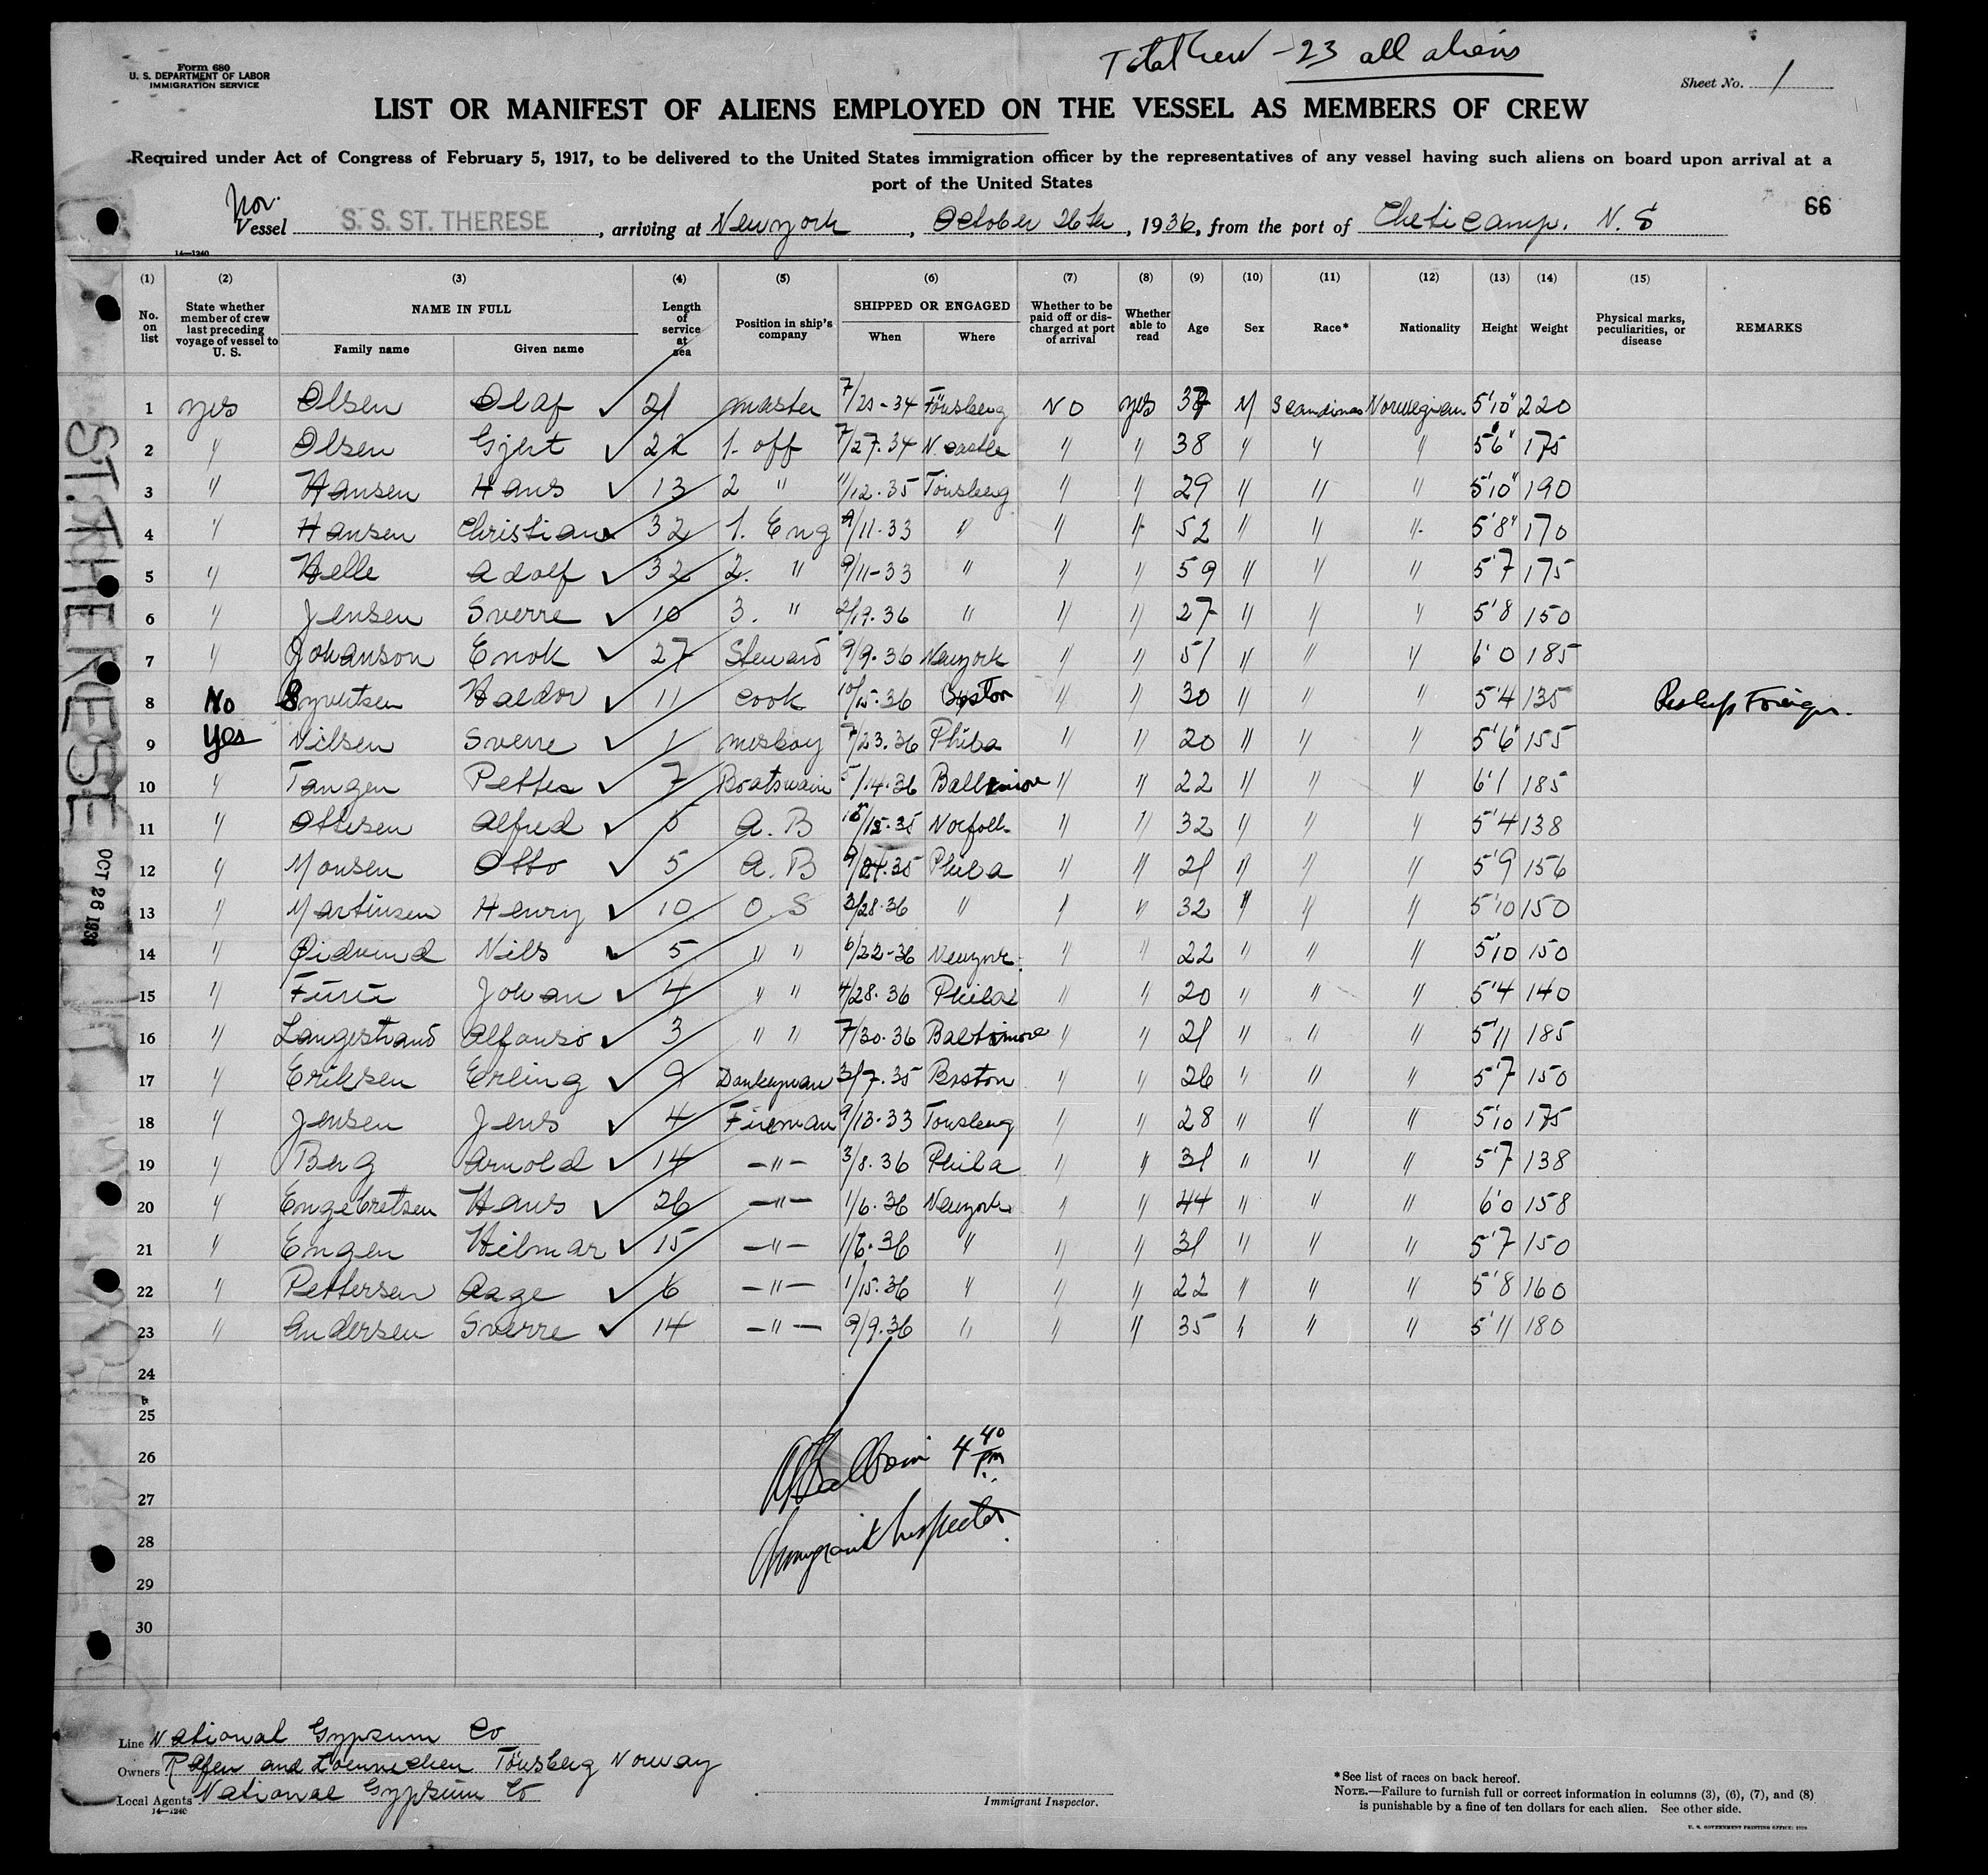 Total Crew - 23 all aliens
Form 680
U. S. DEPARTMENT OF LABOR
IMMIGRATION SERVICE
Sheet No. 1
LIST OR MANIFEST OF ALIENS EMPLOYED ON THE VESSEL AS MEMBERS OF CREW
Required under Act of Congress of February 5, 1917, to be delivered to the United States immigration officer by the representatives of any vessel having such aliens on board upon arrival at a
port of the United States
66
Nor.
Vessel S. S. ST. THERESE, arriving at Newyork, October 26th, 1936, from the port of Cheticamp. N. S
14—1240
(1) (2) (3) (4) (5) (6) (7) (8) (9) (10) (11) (12) (13) (14) (15)
No. on list State whether member of crew last preceding voyage of vessel to U. S. NAME IN FULL Family name Given name Length of service at sea Position in ship's company SHIPPED OR ENGAGED When Where Whether to be paid off or discharged at port of arrival Whether able to read Age Sex Race* Nationality Height Weight Physical marks, peculiarities, or disease REMARKS
1 yes Olsen Olaf ✓ 21 master 7/20-34 Tönsberg NO yes 37 M Scandinav Norwegian 5'10" 220
2 " Olsen Gjert ✓ 22 1. off 7/27.34 N. castle " " 38 " " " 5'6" 175
3 " Hansen Hans ✓ 13 2 " 11/12.35 Tönsberg " " 29 " " " 5'10" 190
4 " Hansen Christian ✓ 32 1. Eng 9/11-33 " " " 52 " " " 5'8" 170
5 " Helle Adolf ✓ 32 2. " 9/11-33 " " " 59 " " " 5'7 175
6 " Jensen Sverre ✓ 10 3. " 2/19.36 " " " 27 " " " 5'8 150
7 " Johanson Enok ✓ 27 Steward 9/9.36 Newyork " " 51 " " " 6'0 185
8 No Syvertsen Haldor ✓ 11 cook 10/15.36 Boston " " 30 " " " 5'4 135
9 Yes Nilsen Sverre ✓ 1 mesboy 7/23.36 Phila " " 20 " " " 5'6 155
10 " Tangen Petter ✓ 7 Boatswain 5/14.36 Baltimore " " 22 " " " 6'1 185
11 " Ottesen Alfred ✓ 5 A. B 10/15.35 Norfolk " " 32 " " " 5'4 138
12 " Monsen Otto ✓ 5 A. B 9/24.35 Phila " " 21 " " " 5'9 156
13 " Martinsen Henry ✓ 10 O. S 3/28.36 " " " 32 " " " 5'10 150
14 " Øidvind Nils ✓ 5 " " 6/22-36 Newyork " " 22 " " " 5'10 150
15 " Johan ✓ 4 " " 4/28.36 Phila " " 20 " " " 5'4 140
16 " Langestrand Alfonso ✓ 3 " " 7/30.36 Baltimore " " 21 " " " 5'11 185
17 " Eriksen Erling ✓ 9 Donkeyman 3/7.35 Boston " " 26 " " " 5'7 150
18 " Jensen Jens ✓ 4 Fireman 9/13.33 Tonsberg " " 28 " " " 5'10 175
19 " Berg Arnold ✓ 14 — " — 3/8.36 Phila " " 31 " " " 5'7 138
20 " Engebretsen Hans ✓ 26 — " — 1/6.36 Newyork " " 44 " " " 6'0 158
21 " Engen Hilmar ✓ 15 — " — 1/6.36 " " " 31 " " " 5'7 150
22 " Pettersen Aage ✓ 6 — " — 1/15.36 " " " 22 " " " 5'8 160
23 " Andersen Sverre ✓ 14 — " — 9/9.36 " " " 35 " " " 5'11 180
24
25
26
27
28
29
30
4 40 pm
Immigrant Inspector
ST. THERESE
OCT 26 1936
Line National Gypsum Co
Owners and Tönsberg Norway
Local Agents National Gypsum Co
14—1240
Immigrant Inspector.
*See list of races on back hereof.
NOTE.—Failure to furnish full or correct information in columns (3), (6), (7), and (8)
is punishable by a fine of ten dollars for each alien. See other side.